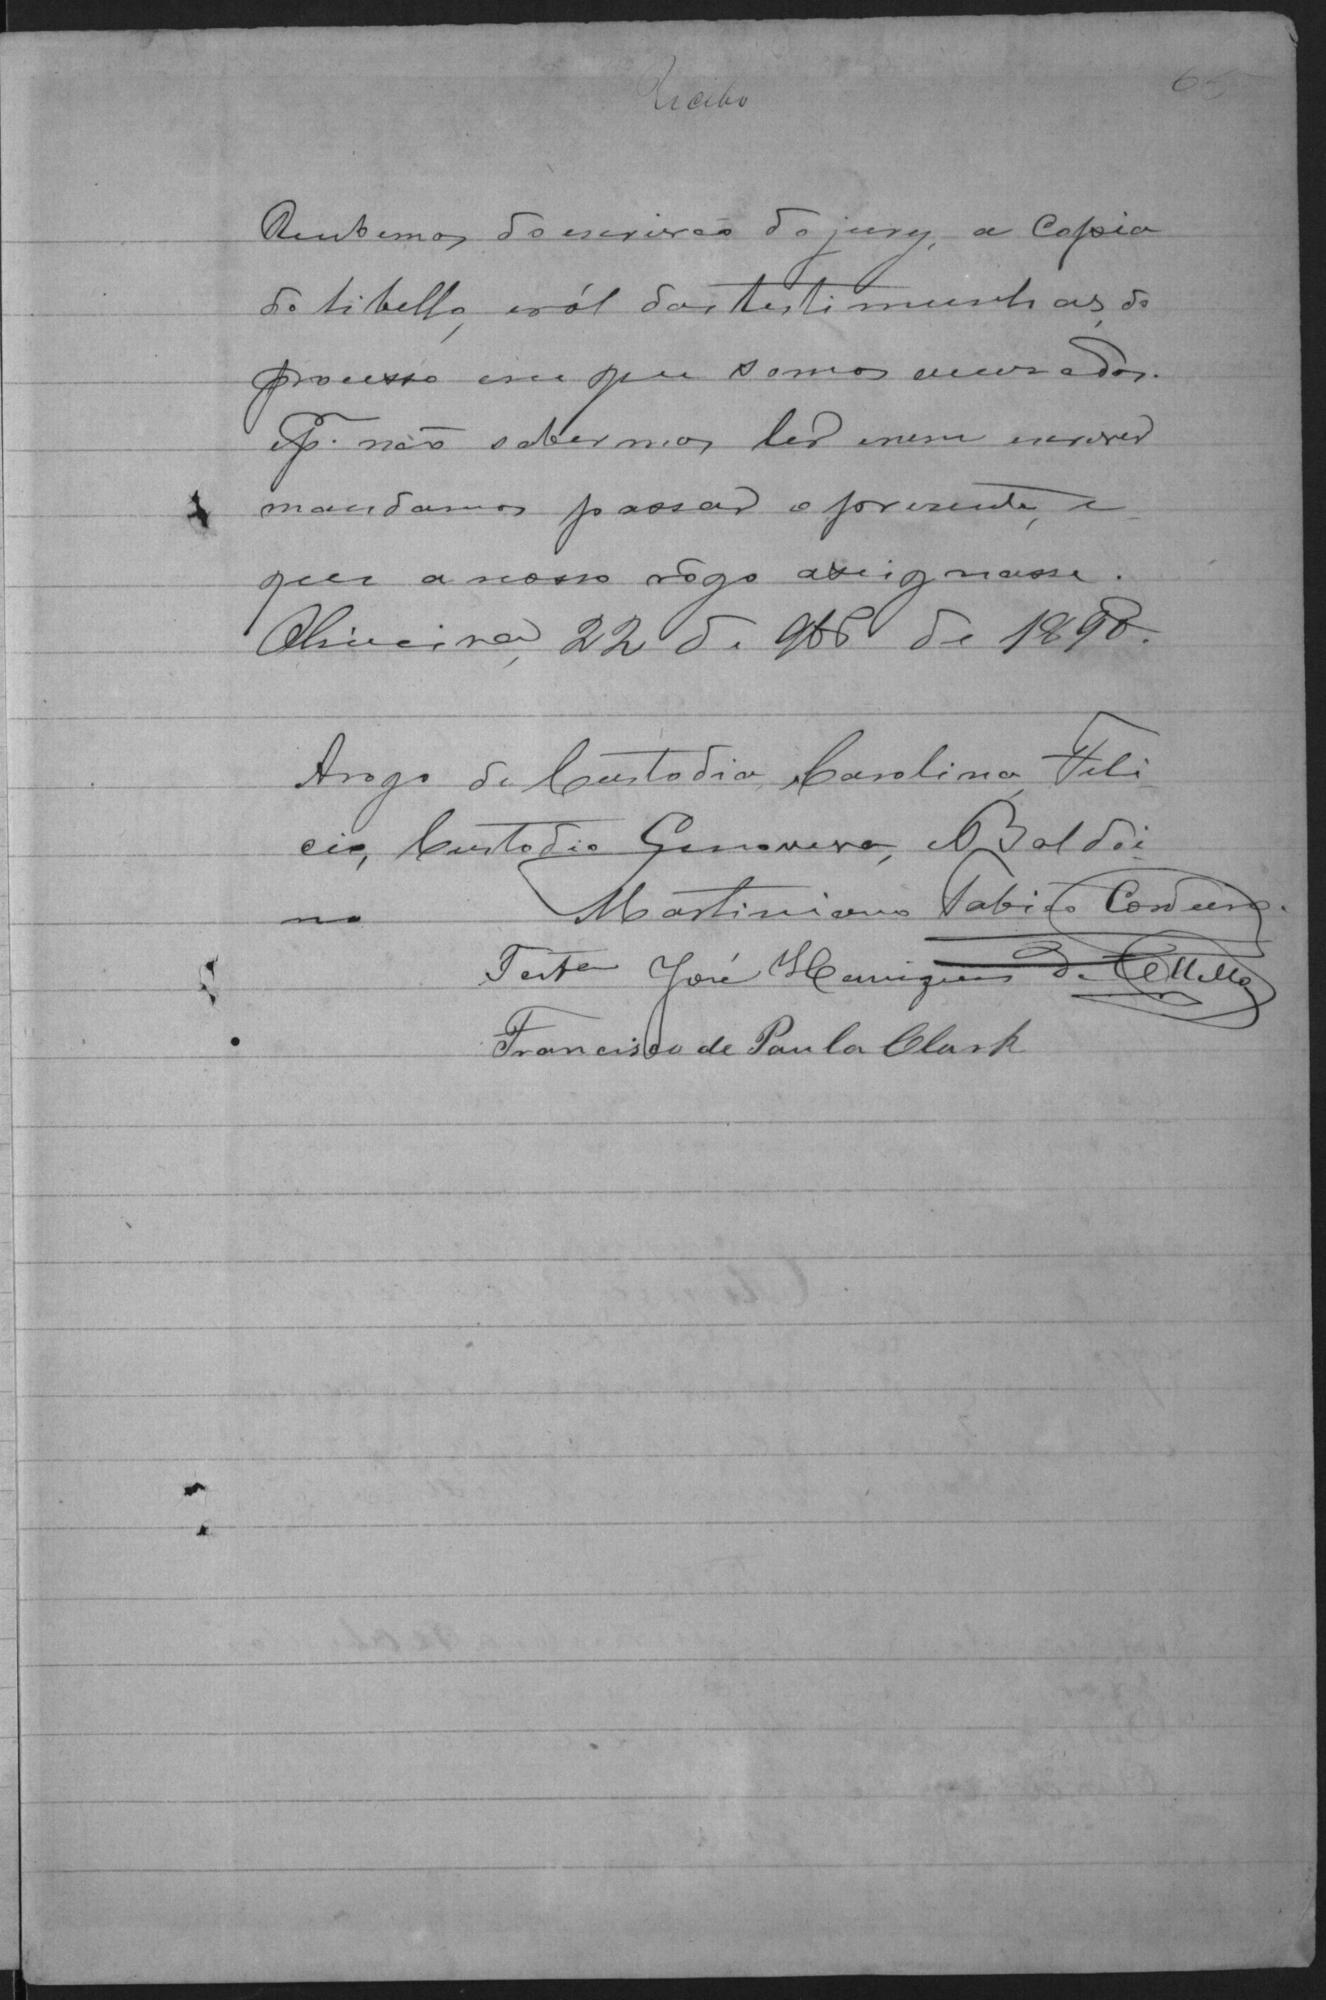 Recibo
65
Recebemos do escrivão do jury, a copia
do libello, e ról das testimunhas, do
processo em que somos accusados.
E p. não sabermos ler e nem escrever
mandamos passar o presente, e
que a nosso rôgo assignasse.
Oliveira, 22 de de 1898.
Arogo de Custodia, Carolina, Feli
cio, Custodio Genoveva, e Baldoi
no Martiniano Fabião Cordeiro.
Testa José Henriques de Mello
Francisco de Paula Clark